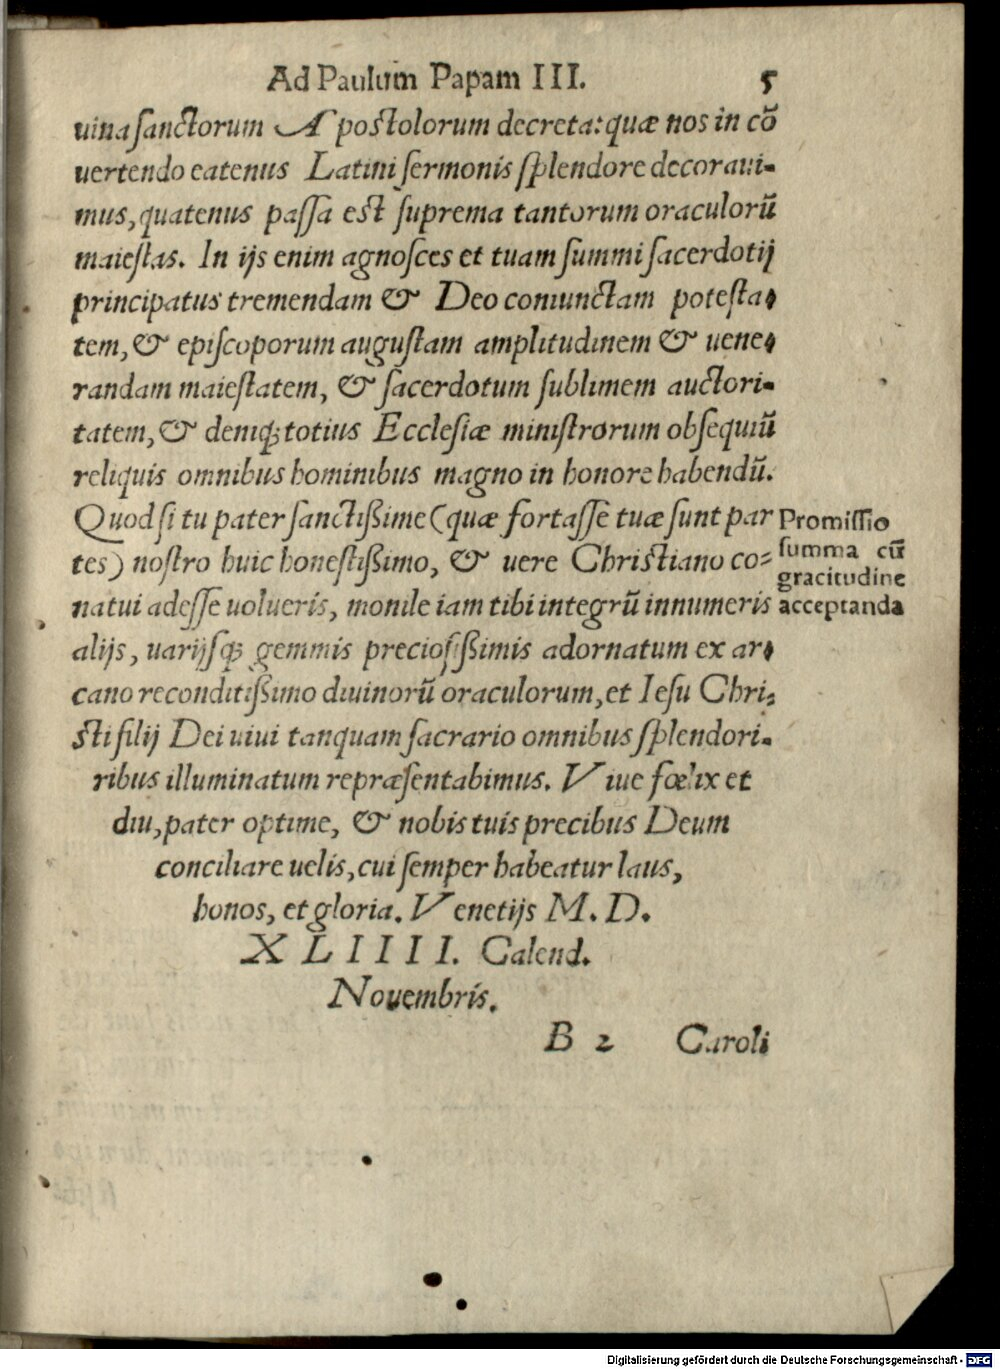 Ad Paulum Papam III. 5
uina sanctorum Apostolorum decreta: quæ nos in cõ
uertendo eatenus Latini sermonis splendore decoraui-
mus, quatenus passa est suprema tantorum oraculorũ
maiestas. In ijs enim agnosces et tuam summi sacerdotij
principatus tremendam & Deo coniunctam potesta-
tem, & episcoporum augustam amplitudinem & uene-
randam maiestatem, & sacerdotum sublimem auctori-
tatem, & deniq; totius Ecclesiæ ministrorum obsequiũ
reliquis omnibus hominibus magno in honore habendũ.
Quod si tu pater sanctißime (quæ fortasse tuæ sunt par
tes) nostro huic honestißimo, & uere Christiano co-
natui adesse uolueris, monile iam tibi integrũ innumeris
alijs, uarijsq; gemmis preciosißimis adornatum ex ar-
cano reconditißimo diuinorũ oraculorum, et Iesu Chri-
sti filij Dei uiui tanquam sacrario omnibus splendori-
ribus illuminatum repræsentabimus. Viue fœlix et
diu, pater optime, & nobis tuis precibus Deum
conciliare uelis, cui semper habeatur laus,
honos, et gloria. Venetijs M. D.
XLIIII. Calend.
Nouembris.
B 2 Caroli
Promissio
summa cũ
gracitudine
acceptanda
Digitalisierung gefördert durch die Deutsche Forschungsgemeinschaft - DFG